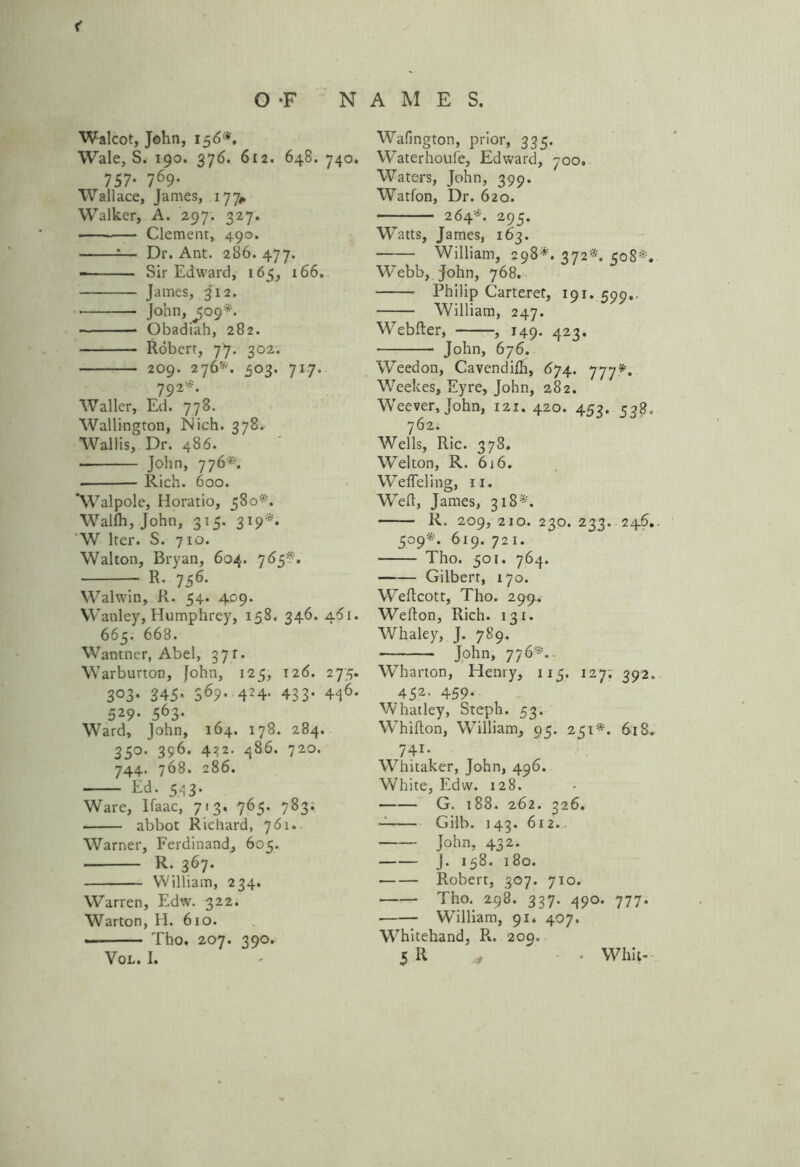 OF NAMES.
Walcot, John, 156*.
Wale, S. 190. 376. 612. 648. 740.
757. 769.
Wallace, James, 177*
Walker, A. 297. 327.
—— Clement, 490.
—— Dr. Ant. 286. 477.
—— Sir Edward, 165, 166.
—— James, 312.
—— John, 509*.
—— Obadiah, 282.
—— Robert, 77. 302.
—— 209. 276*. 503. 717.
792*.
Waller, Ed. 778.
Wallington, Nich. 378.
Wallis, Dr. 486.
—— John, 776*.
—— Rich. 600.
Walpole, Horatio, 580*.
Walſh, John, 315. 319*.
W lter. S. 710.
Walton, Bryan, 604. 765*.
—— R. 756.
Walwin, R. 54. 409.
Wanley, Humphrey, 158. 346. 461.
665. 668.
Wantner, Abel, 371.
Warburton, John, 125, 126. 275.
303. 345. 369. 424. 433. 446.
529. 563.
Ward, John, 164. 178. 284.
350. 396. 432. 486. 720.
744. 768. 286.
—— Ed. 543.
Ware, Iſaac, 713. 765. 783.
—— abbot Richard, 761.
Warner, Ferdinand, 605.
—— R. 367.
—— William, 234.
Warren, Edw. 322.
Warton, H. 610.
—— Tho. 207. 390.
VOL. I.
Waſington, prior, 335.
Waterhouſe, Edward, 700.
Waters, John, 399.
Watſon, Dr. 620.
—— 264*. 295.
Watts, James, 163.
—— William, 298*. 372*. 508*.
Webb, John, 768.
—— Philip Carteret, 191. 599.
—— William, 247.
Webſter, ——, 149. 423.
—— John, 676.
Weedon, Cavendiſh, 674. 777*.
Weekes, Eyre, John, 282.
Weever, John, 121. 420. 453. 538.
762.
Wells, Ric. 378.
Welton, R. 616.
Weſſeling, 11.
Weſt, James, 318*.
—— R. 209, 210. 230. 233. 246.
509*. 619. 721.
—— Tho. 501. 764.
—— Gilbert, 170.
Weſtcott, Tho. 299.
Weſton, Rich. 131.
Whaley, J. 789.
—— John, 776*.
Wharton, Henry, 115. 127. 392.
452. 459.
Whatley, Steph. 53.
Whiſton, William, 95. 251*. 618.
741.
Whitaker, John, 496.
White, Edw. 128.
—— G. 188. 262. 326.
—— Gilb. 143. 612.
—— John, 432.
—— J. 158. 180.
—— Robert, 307. 710.
—— Tho. 298. 337. 490. 777.
—— William, 91. 407.
Whitehand, R. 209.
5 R Whit-